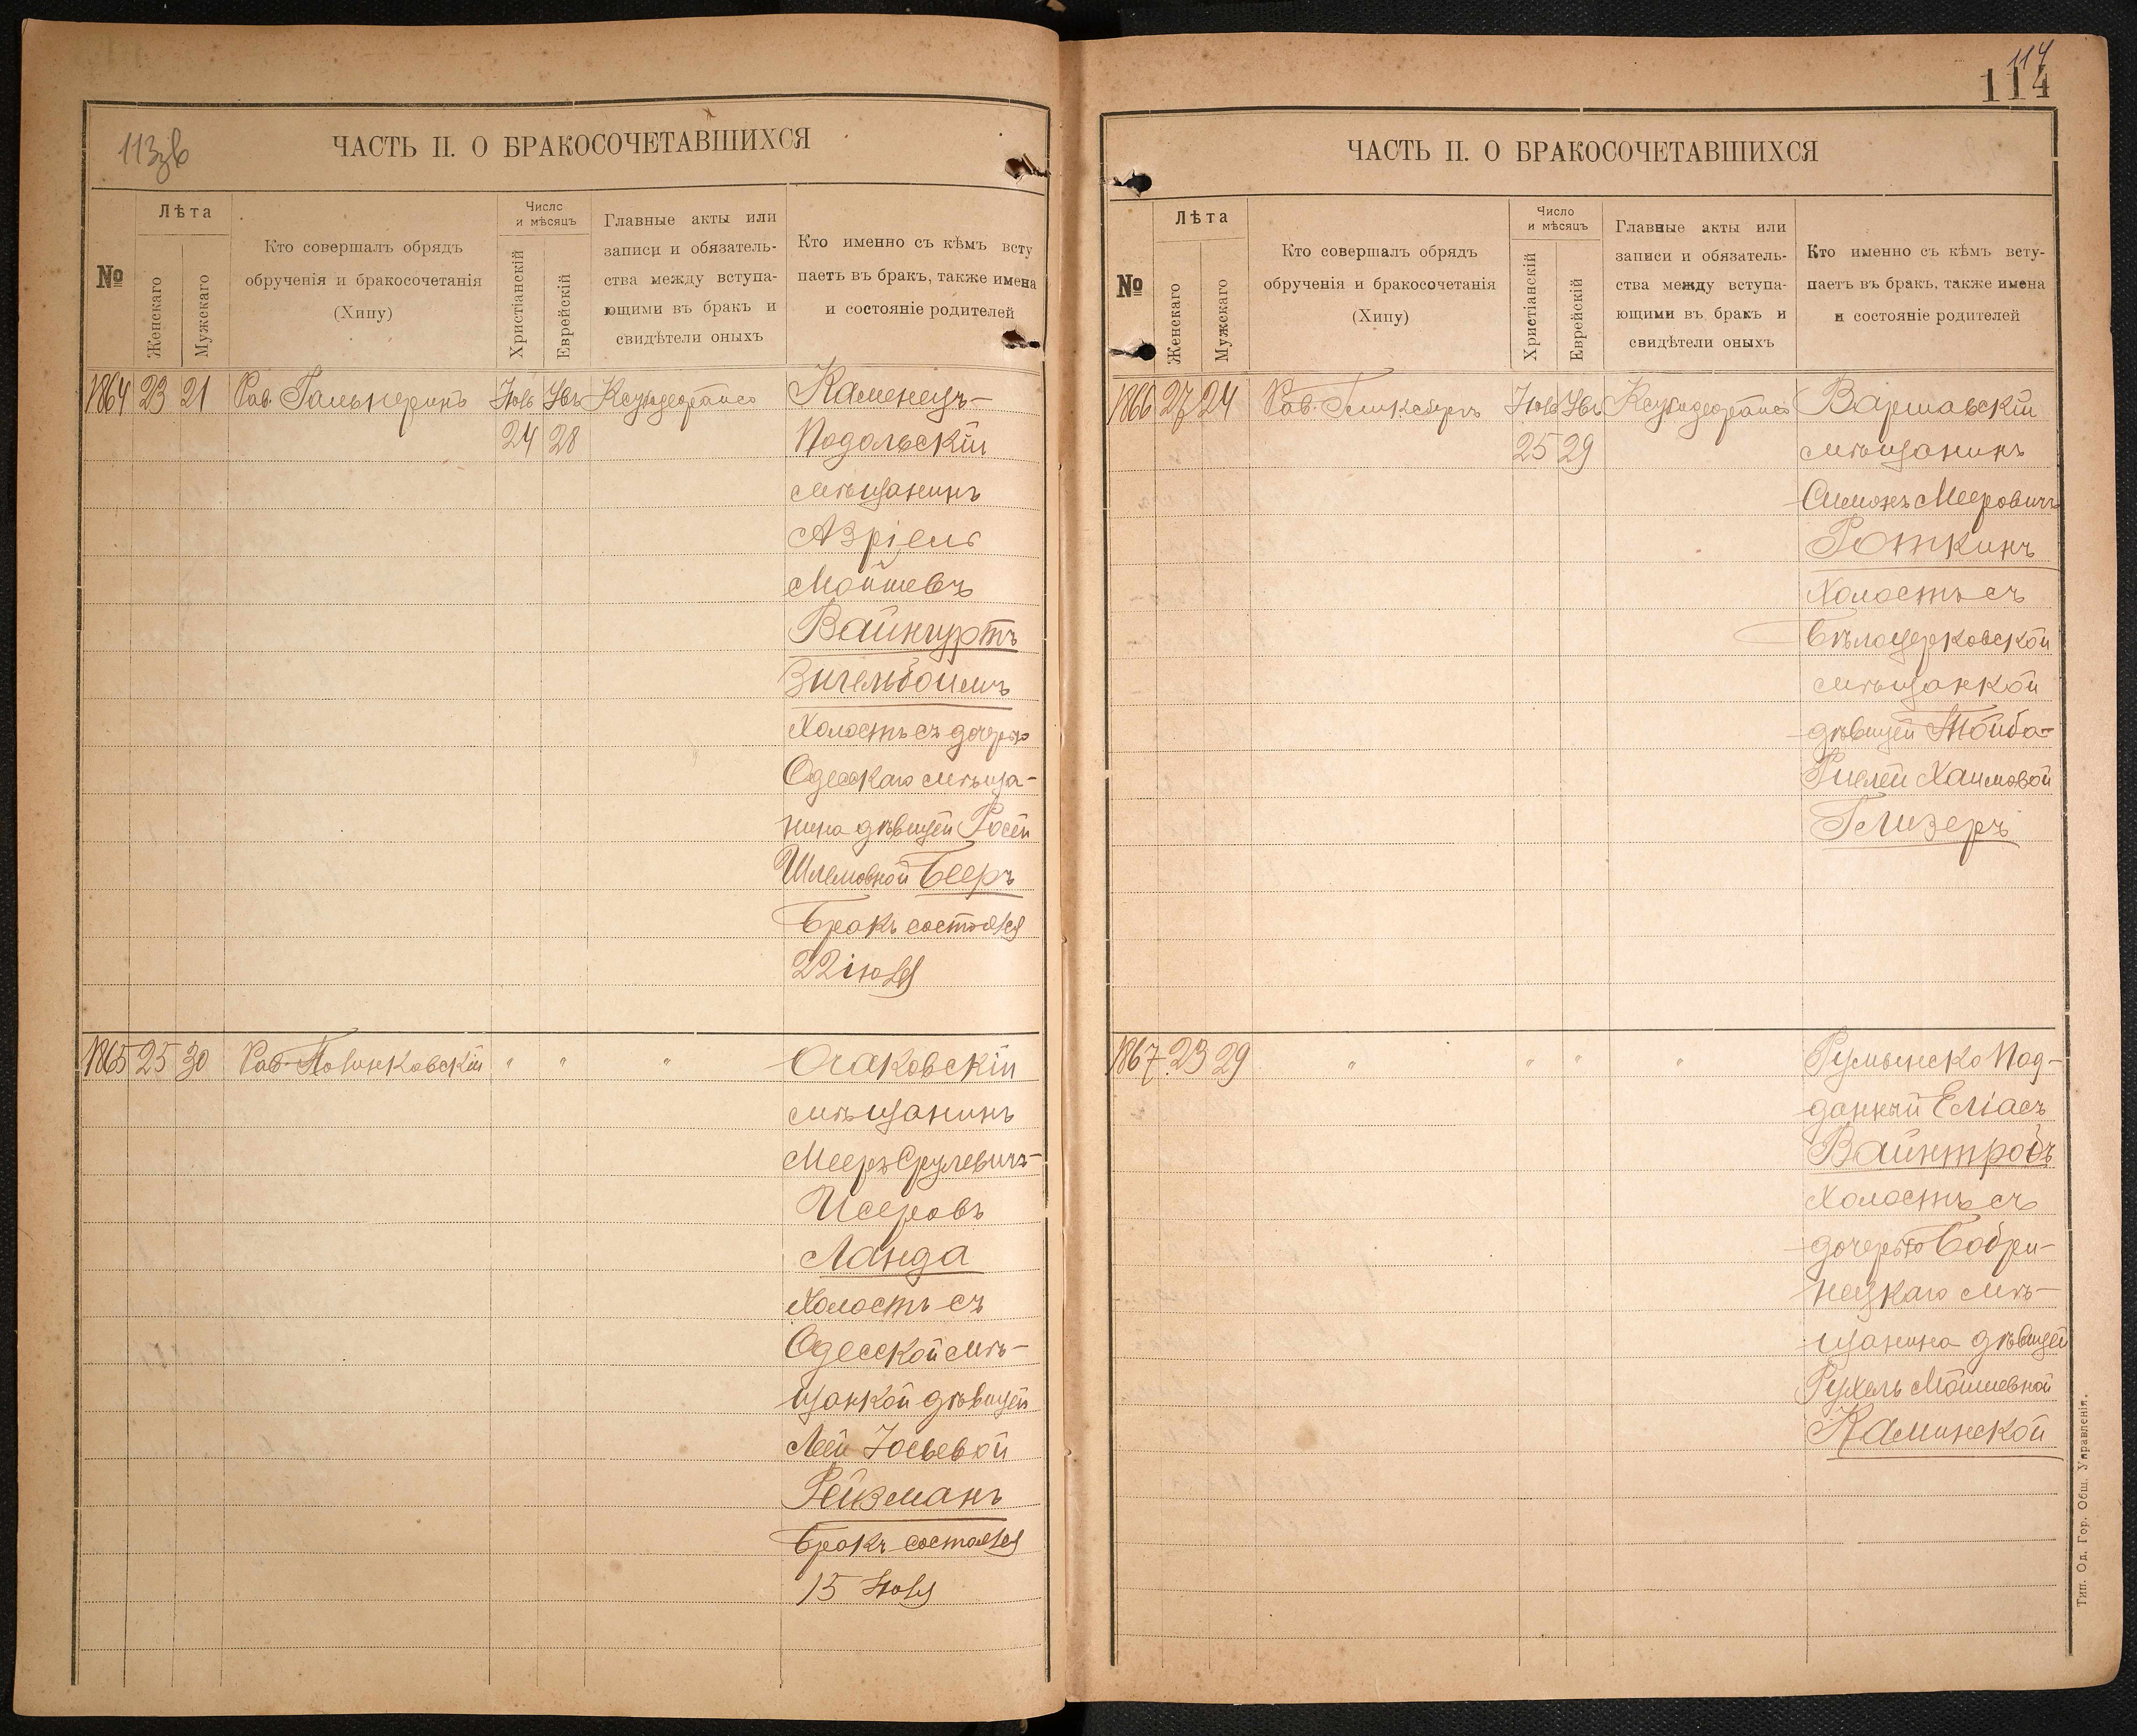 113зв
ЧАСТЬ II. О БРАКОСОЧЕТАВШИХСЯ
№
Лѣта
Женскаго
Мужскаго
Кто совершалъ обрядъ
обрученія и бракосочетанія
(Хипу)
Число
и мѣсяцъ
Христіанскій
Еврейскій
Главные акты или
записи и обязатель-
ства между вступа-
ющими въ бракъ и
свидѣтели оныхъ
Кто именно съ кѣмъ всту
паетъ въ бракъ, также имена
и состояніе родителей
1864 23 21 Рав. Гальперинъ
24 28
Каменецъ-
Подольскій
мѣщанинъ
Азріель
Мойшевъ
Вайнгуртъ
Энгельбоймъ
Холостъ съ дочерью
Одесскаго мѣща-
нина дѣвицей Росей
Шлемовной Бееръ
Бракъ состоялся
22 іюля
1865 25 30 Рав. " " "
Очаковскій
мѣщанинъ
Мееръ Срулевичъ-
Исеровъ
Ланда
Холостъ съ
Одесской мѣ-
щанкой дѣвицей
Леей Іосьевой
Рейзманъ
Бракъ состоялся
15 Іюля
114
114
ЧАСТЬ II. О БРАКОСОЧЕТАВШИХСЯ
№
Лѣта
Женскаго
Мужскаго
Кто совершалъ обрядъ
обрученія и бракосочетанія
(Хипу)
Число
и мѣсяцъ
Христіанскій
Еврейскій
Главные акты или
записи и обязатель-
ства между вступа-
ющими въ бракъ и
свидѣтели оныхъ
Кто именно съ кѣмъ всту-
паетъ въ бракъ, также имена
и состояніе родителей
1866 27 24 Рав.
25 29
Варшавскій
мѣщанинъ
Симонъ Мееровичъ
Роткинъ
Холостъ съ
Бѣлоцерковской
мѣщанкой
дѣвицей Тойба-
Гислей Хаимовой
Глизеръ
1867 23 29 " " " "
Румынско Под-
данный Еліасъ
Вайнтробъ
Холостъ съ
дочерью Бобри-
нецкаго мѣ-
щанина дѣвицей
Рухель Мошевной
Каминской
Тип. Од. Гор. Общ. Управленія.